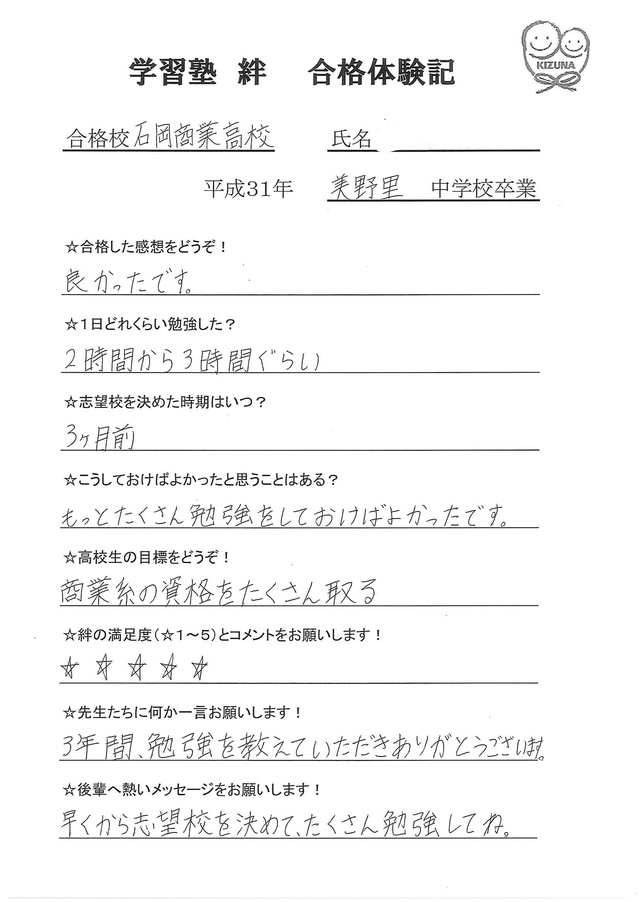 学習塾 絆 合格体験記
KIZUNA
合格校 石岡商業高校 氏名
平成31年 美野里 中学校卒業
☆合格した感想をどうぞ！
良かったです。
☆1日どれくらい勉強した？
2時間から3時間ぐらい
☆志望校を決めた時期はいつ？
3ヶ月前
☆こうしておけばよかったと思うことはある？
もっとたくさん勉強をしておけばよかったです。
☆高校生の目標をどうぞ！
商業系の資格をたくさん取る
☆絆の満足度（☆1～5）とコメントをお願いします！
☆ ☆ ☆ ☆ ☆
☆先生たちに何か一言お願いします！
3年間、勉強を教えていただきありがとうございます。
☆後輩へ熱いメッセージをお願いします！
早くから志望校を決めて、たくさん勉強してね。